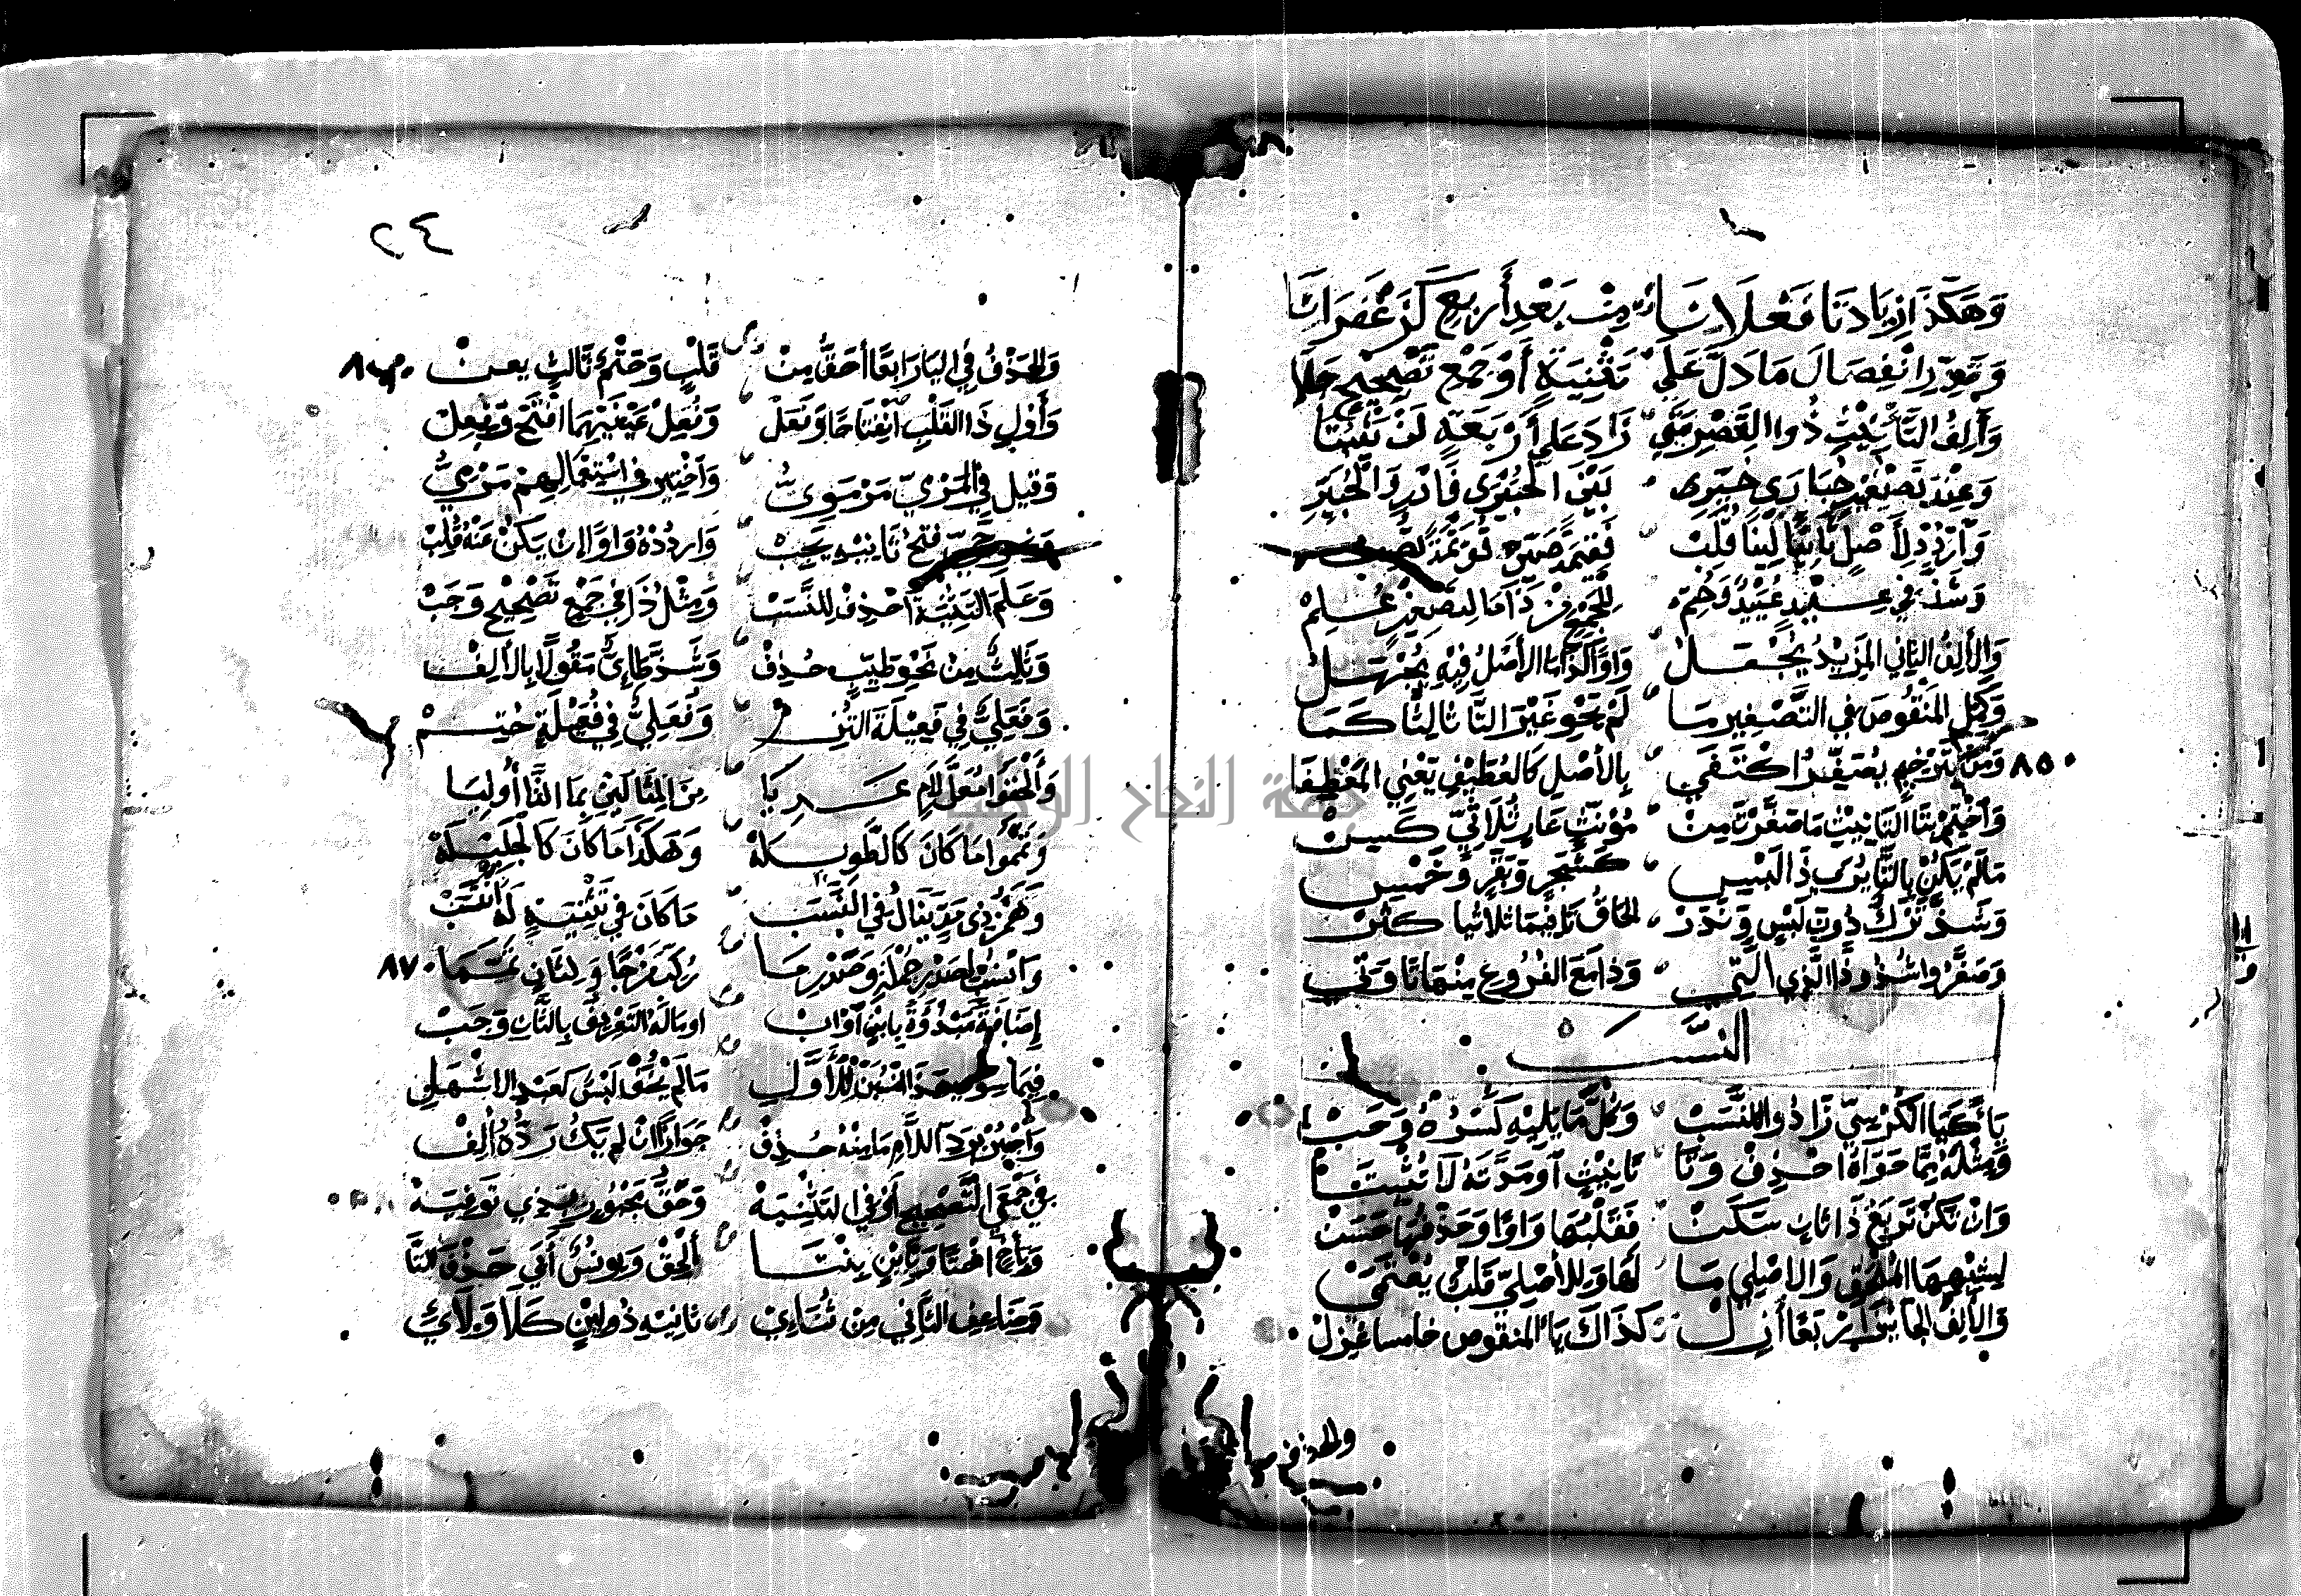 وَهَكَذَا زِيَادَتَا فَعْلَانَا مِنْ بَعْدِ أَرْبَعٍ كَزَعْفَرَانَا
وَقَدِّرِ انْفِصَالَ مَا دَلَّ عَلَى تَثْنِيَةٍ أَوْ جَمْعِ تَصْحِيحٍ جَلَا
وَأَلِفُ التَّأْنِيْثِ ذُو الْقَصْرِ مَتَى زَادَ عَلَى أَرْبَعَةٍ لَنْ يَثْبُتَا
وَعِنْدَ تَصْغِيْرِ حُبَارَى خَيِّرِ بَيْنَ الْحُبَيْرَى فَادْرِ وَالْحُبَيِّرِ
وَارْدُدْ لِأَصْلٍ ثَانِيًا لَيْنًا قُلِبْ فَقِيْمَةً صَيِّرْ قُوَيْمَةً تُصِبْ
وَشَذَّ فِي عِيْدٍ عُيَيْدٌ وَحُتِمْ لِلْجَمْعِ مِنْ ذَا مَا لِتَصْغِيْرٍ عُلِمْ
وَالْأَلِفُ الثَّانِي الْمَزِيْدُ يُجْعَلُ وَاوًا كَذَا مَا الْأَصْلُ فِيْهِ يُجْهَلُ
وَكَمِّلِ الْمَنْقُوصَ فِي التَّصْغِيْرِ مَا لَمْ يَحْوِ غَيْرَ التَّا ثَالِثًا كَمَا
٨٥٠ وَمَنْ بِتَرْخِيْمٍ يُصَغِّرُ اكْتَفَى بِالْأَصْلِ كَالْعُطَيْفِ يَعْنِي الْمِعْطَفَا
وَاخْتِمْ بِتَا التَّأْنِيْثِ مَا صَغَّرْتَ مِنْ مُؤَنَّثٍ عَارٍ ثُلَاثِيٍّ كَسِنْ
مَا لَمْ يَكُنْ بِالتَّا يُرَى ذَا لَبْسِ كَشَجَرٍ وَبَقَرٍ وَخَمْسِ
وَشَذَّ تَرْكٌ دُونَ لَبْسٍ وَنَدَرْ لَحَاقُ تَا فِيْمَا ثُلَاثِيًّا كَثَرْ
وَصَغَّرُوا شُذُوذًا الَّذِي الَّتِي وَذَا مَعَ الْفُرُوعِ مِنْهَا تَا وَتِي
النَّسَب
يَاءً كَيَا الْكُرْسِيِّ زَادُوا لِلنَّسَبْ وَكُلُّ مَا يَلِيْهِ كَسْرُهُ وَجَبْ
وَمِثْلَهُ مِمَّا حَوَاهُ احْذِفْ وَتَا تَأْنِيْثٍ أَوْ مَدَّتَهُ لَا تُثْبِتَا
وَإِنْ تَكُنْ تَرْبَعُ ذَا ثَانٍ سَكَنْ فَقَلْبُهَا وَاوًا وَحَذْفُهَا حَسَنْ
لِشِبْهِهَا الْمُلْحَقِ وَالْأَصْلِيِّ مَا لَهَا وَلِلْأَصْلِيِّ قَلْبٌ يُعْتَمَى
وَالْأَلِفَ الْجَائِزَ أَرْبَعًا أَزِلْ كَذَاكَ يَا الْمَنْقُوصِ خَامِسًا عُزِلْ
والحذف في اليا
٢٤
وَالْحَذْفُ فِي الْيَا رَابِعًا أَحَقُّ مِنْ قَلْبٍ وَحَتْمٌ قَلْبُ ثَالِثٍ يَعِنْ ٨٦٠
وَأَوْلِ ذَا الْقَلْبِ انْفِتَاحًا وَفَعِلْ وَفُعِلٌ عَيْنَهُمَا افْتَحْ وَفِعِلْ
وَقِيْلَ فِي الْمَرْمِيِّ مَرْمَوِيُّ وَاخْتِيْرَ فِي اسْتِعْمَالِهِمْ مَرْمِيُّ
وَنَحْوُ حَيٍّ فَتْحُ ثَانِيْهِ يَجِبْ وَارْدُدْهُ وَاوًا إِنْ يَكُنْ عَنْهُ قُلِبْ
وَعَلَمَ التَّثْنِيَةِ احْذِفْ لِلنَّسَبْ وَمِثْلُ ذَا فِي جَمْعِ تَصْحِيْحٍ وَجَبْ
وَثَالِثٌ مِنْ نَحْوِ طَيِّبٍ حُذِفْ وَشَذَّ طَائِيٌّ مَقُولًا بِالْأَلِفْ
وَفَعَلِيٌّ فِي فَعِيْلَةَ الْتُزِمْ وَفُعَلِيٌّ فِي فُعَيْلَةٍ حُتِمْ
وَأَلْحَقُوا مُعَلَّ لَامٍ عَرِيَا مِنَ الْمِثَالَيْنِ بِمَا التَّا أُولِيَا
وَتَمَّمُوا مَا كَانَ كَالطَّوِيْلَةْ وَهَكَذَا مَا كَانَ كَالْجَلِيْلَةْ
وَهَمْزُ ذِي مَدٍّ يُنَالُ فِي النَّسَبْ مَا كَانَ فِي تَثْنِيَةٍ لَهُ انْتَسَبْ
وَانْسُبْ لِصَدْرِ جُمْلَةٍ وَصَدْرِ مَا رُكِّبَ مَزْجًا وَلِثَانٍ تَمَّمَا ٨٧٠
إِضَافَةً مَبْدُوءَةً بِابْنٍ أَوْ اَبْ أَوْ مَا لَهُ التَّعْرِيْفُ بِالثَّانِي وَجَبْ
فِيْمَا سِوَى هَذَا انْسُبَنْ لِلْأَوَّلِ مَا لَمْ يُخَفْ لَبْسٌ كَعَبْدِ الْأَشْهَلِ
وَاجْبُرْ بِرَدِّ اللَّامِ مَا مِنْهُ حُذِفْ جَوَازًا إِنْ لَمْ يَكُ رَدُّهُ أُلِفْ
فِي جَمْعَيِ التَّصْحِيْحِ أَوْ فِي التَّثْنِيَةْ وَحَقُّ مَجْبُورٍ بِهَذِي تَوْفِيَةْ
وَبِأَخٍ أُخْتًا وَبِابْنٍ بِنْتَا أَلْحِقْ وَيُونُسٌ أَبَى حَذْفَ التَّا
وَضَاعِفِ الثَّانِيَ مِنْ ثُنَائِي ثَانِيْهِ ذُو لِيْنٍ كَلَا وَلَائِي
جامعة النجاح الوطنية